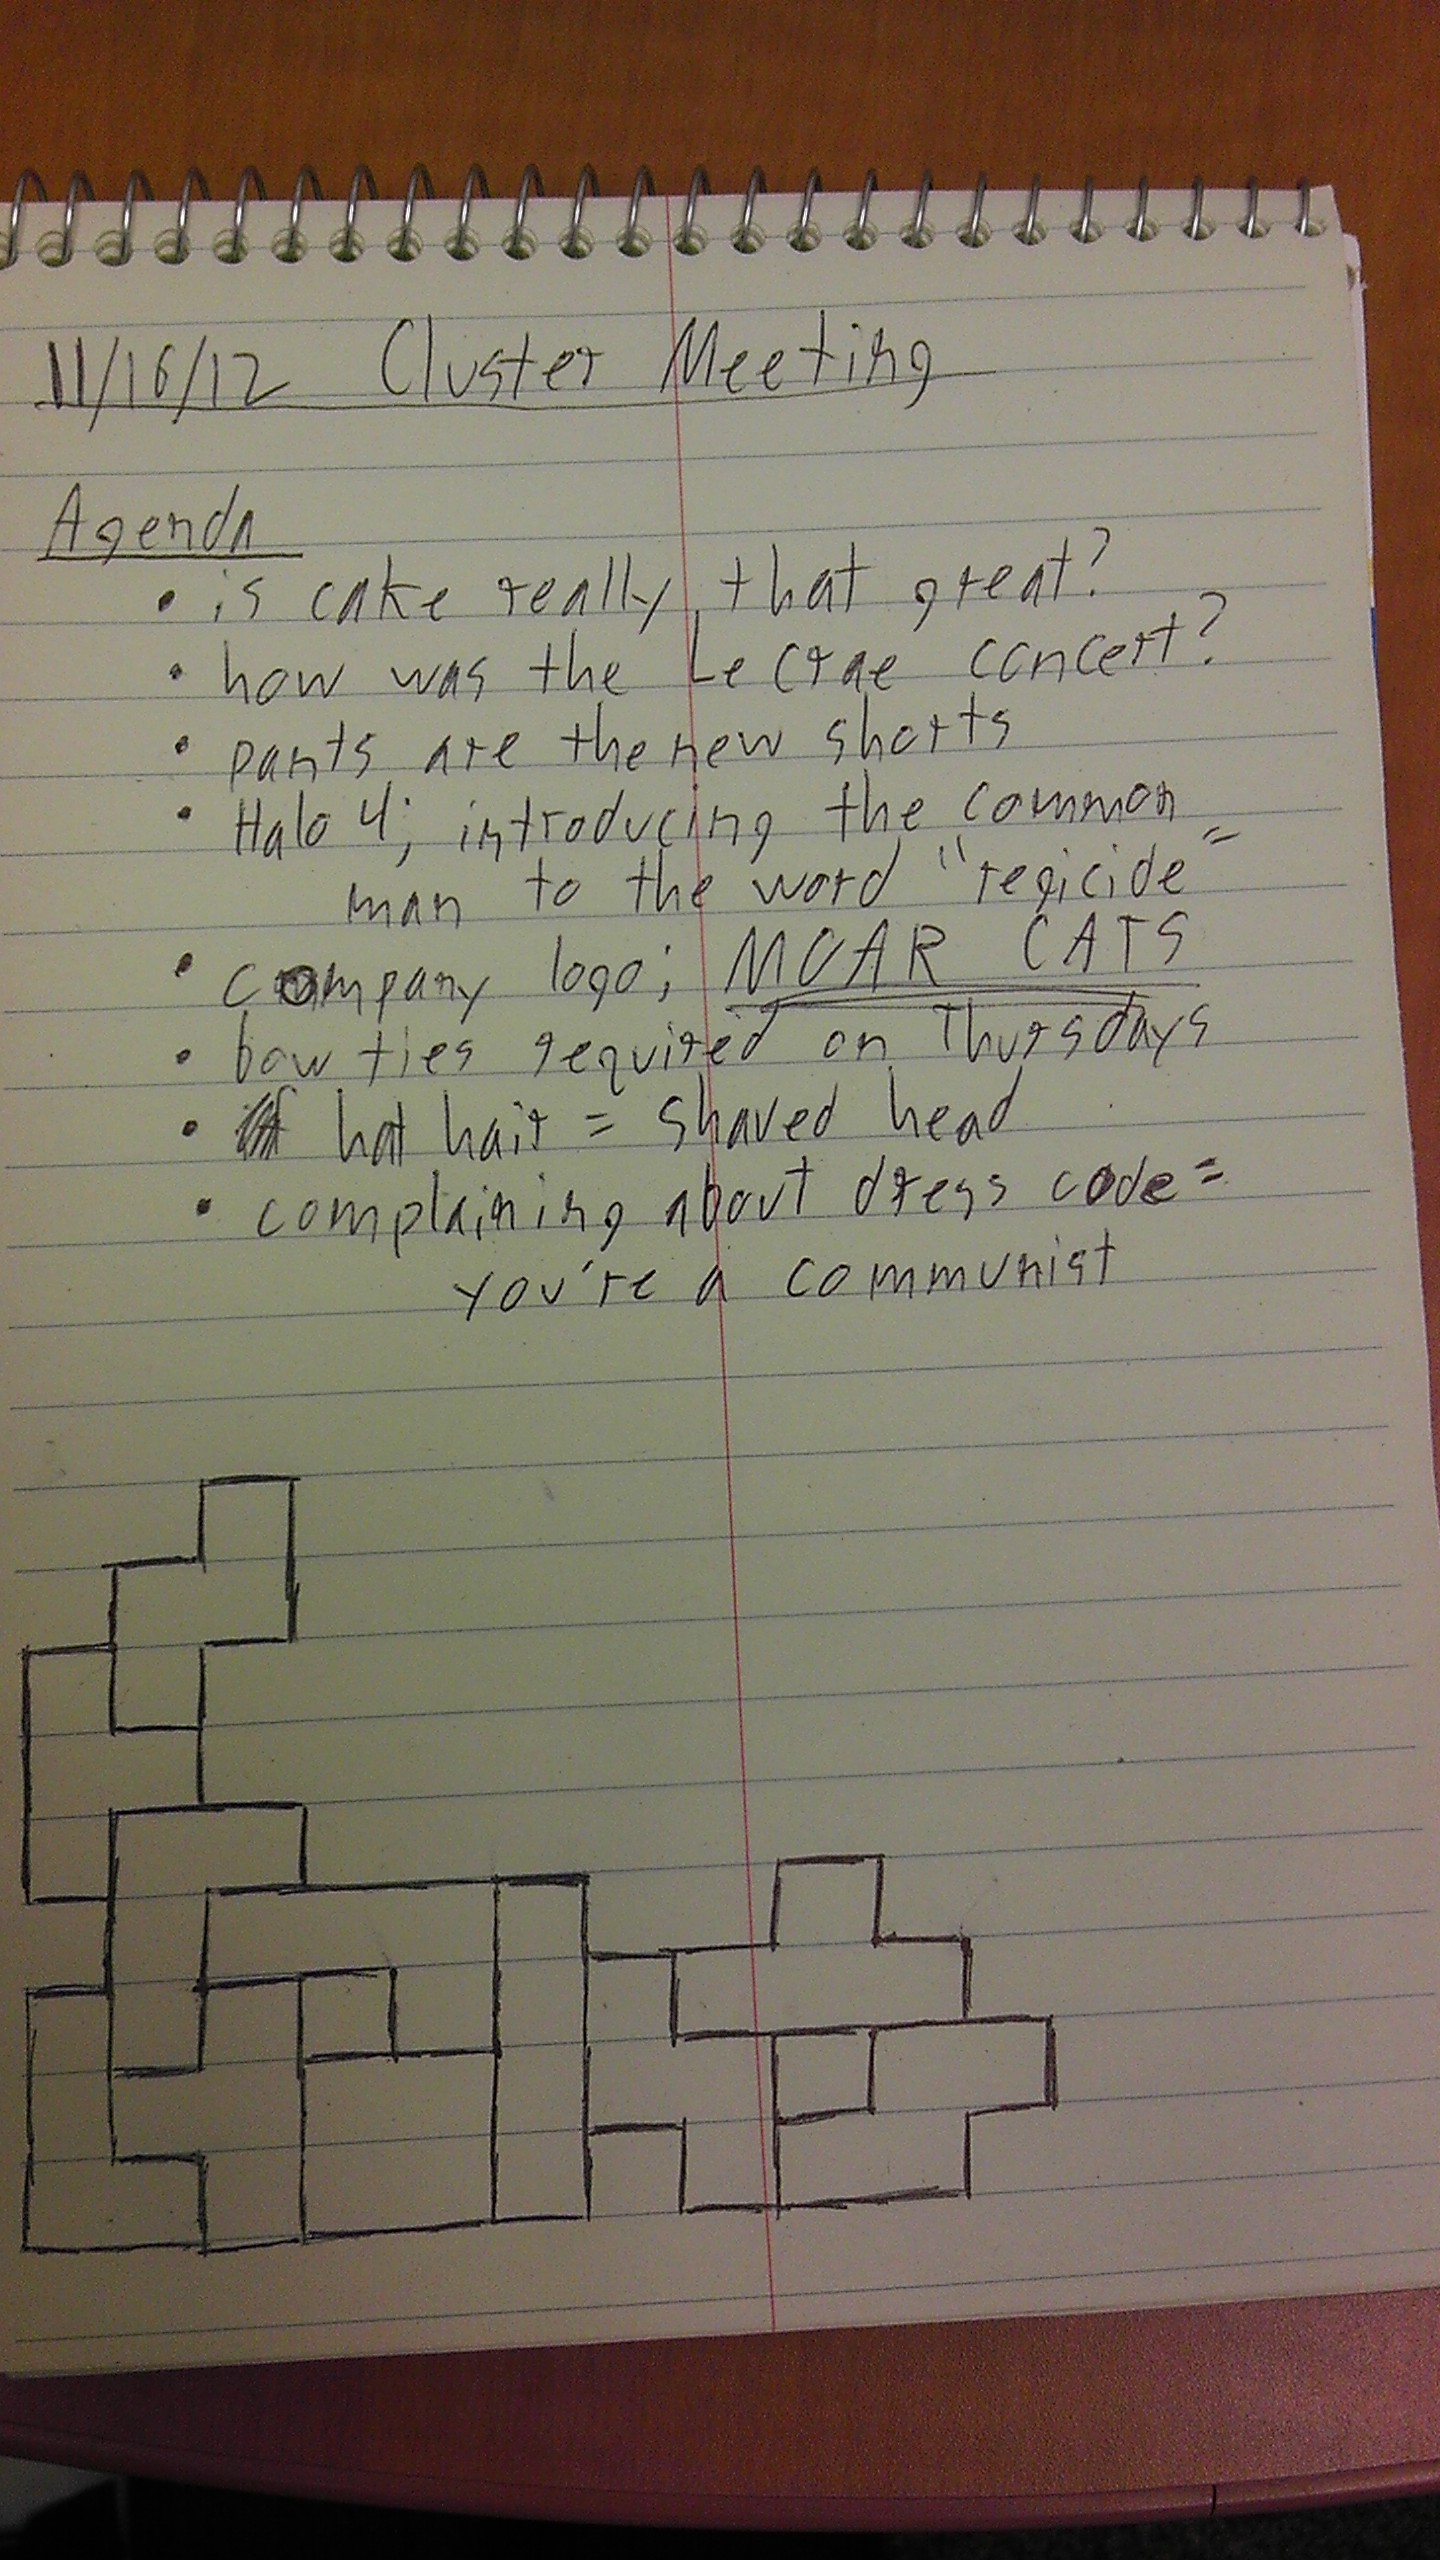 11/16/12 Cluster Meeting
Agenda
• is cake really that great?
• how was the LeCrae concert?
• pants are the new shorts
• Halo 4; introducing the common
man to the word "regicide"
• company logo; MOAR CATS
• bow ties required on Thursdays
• hat hair = shaved head
• complaining about dress code =
you're a communist